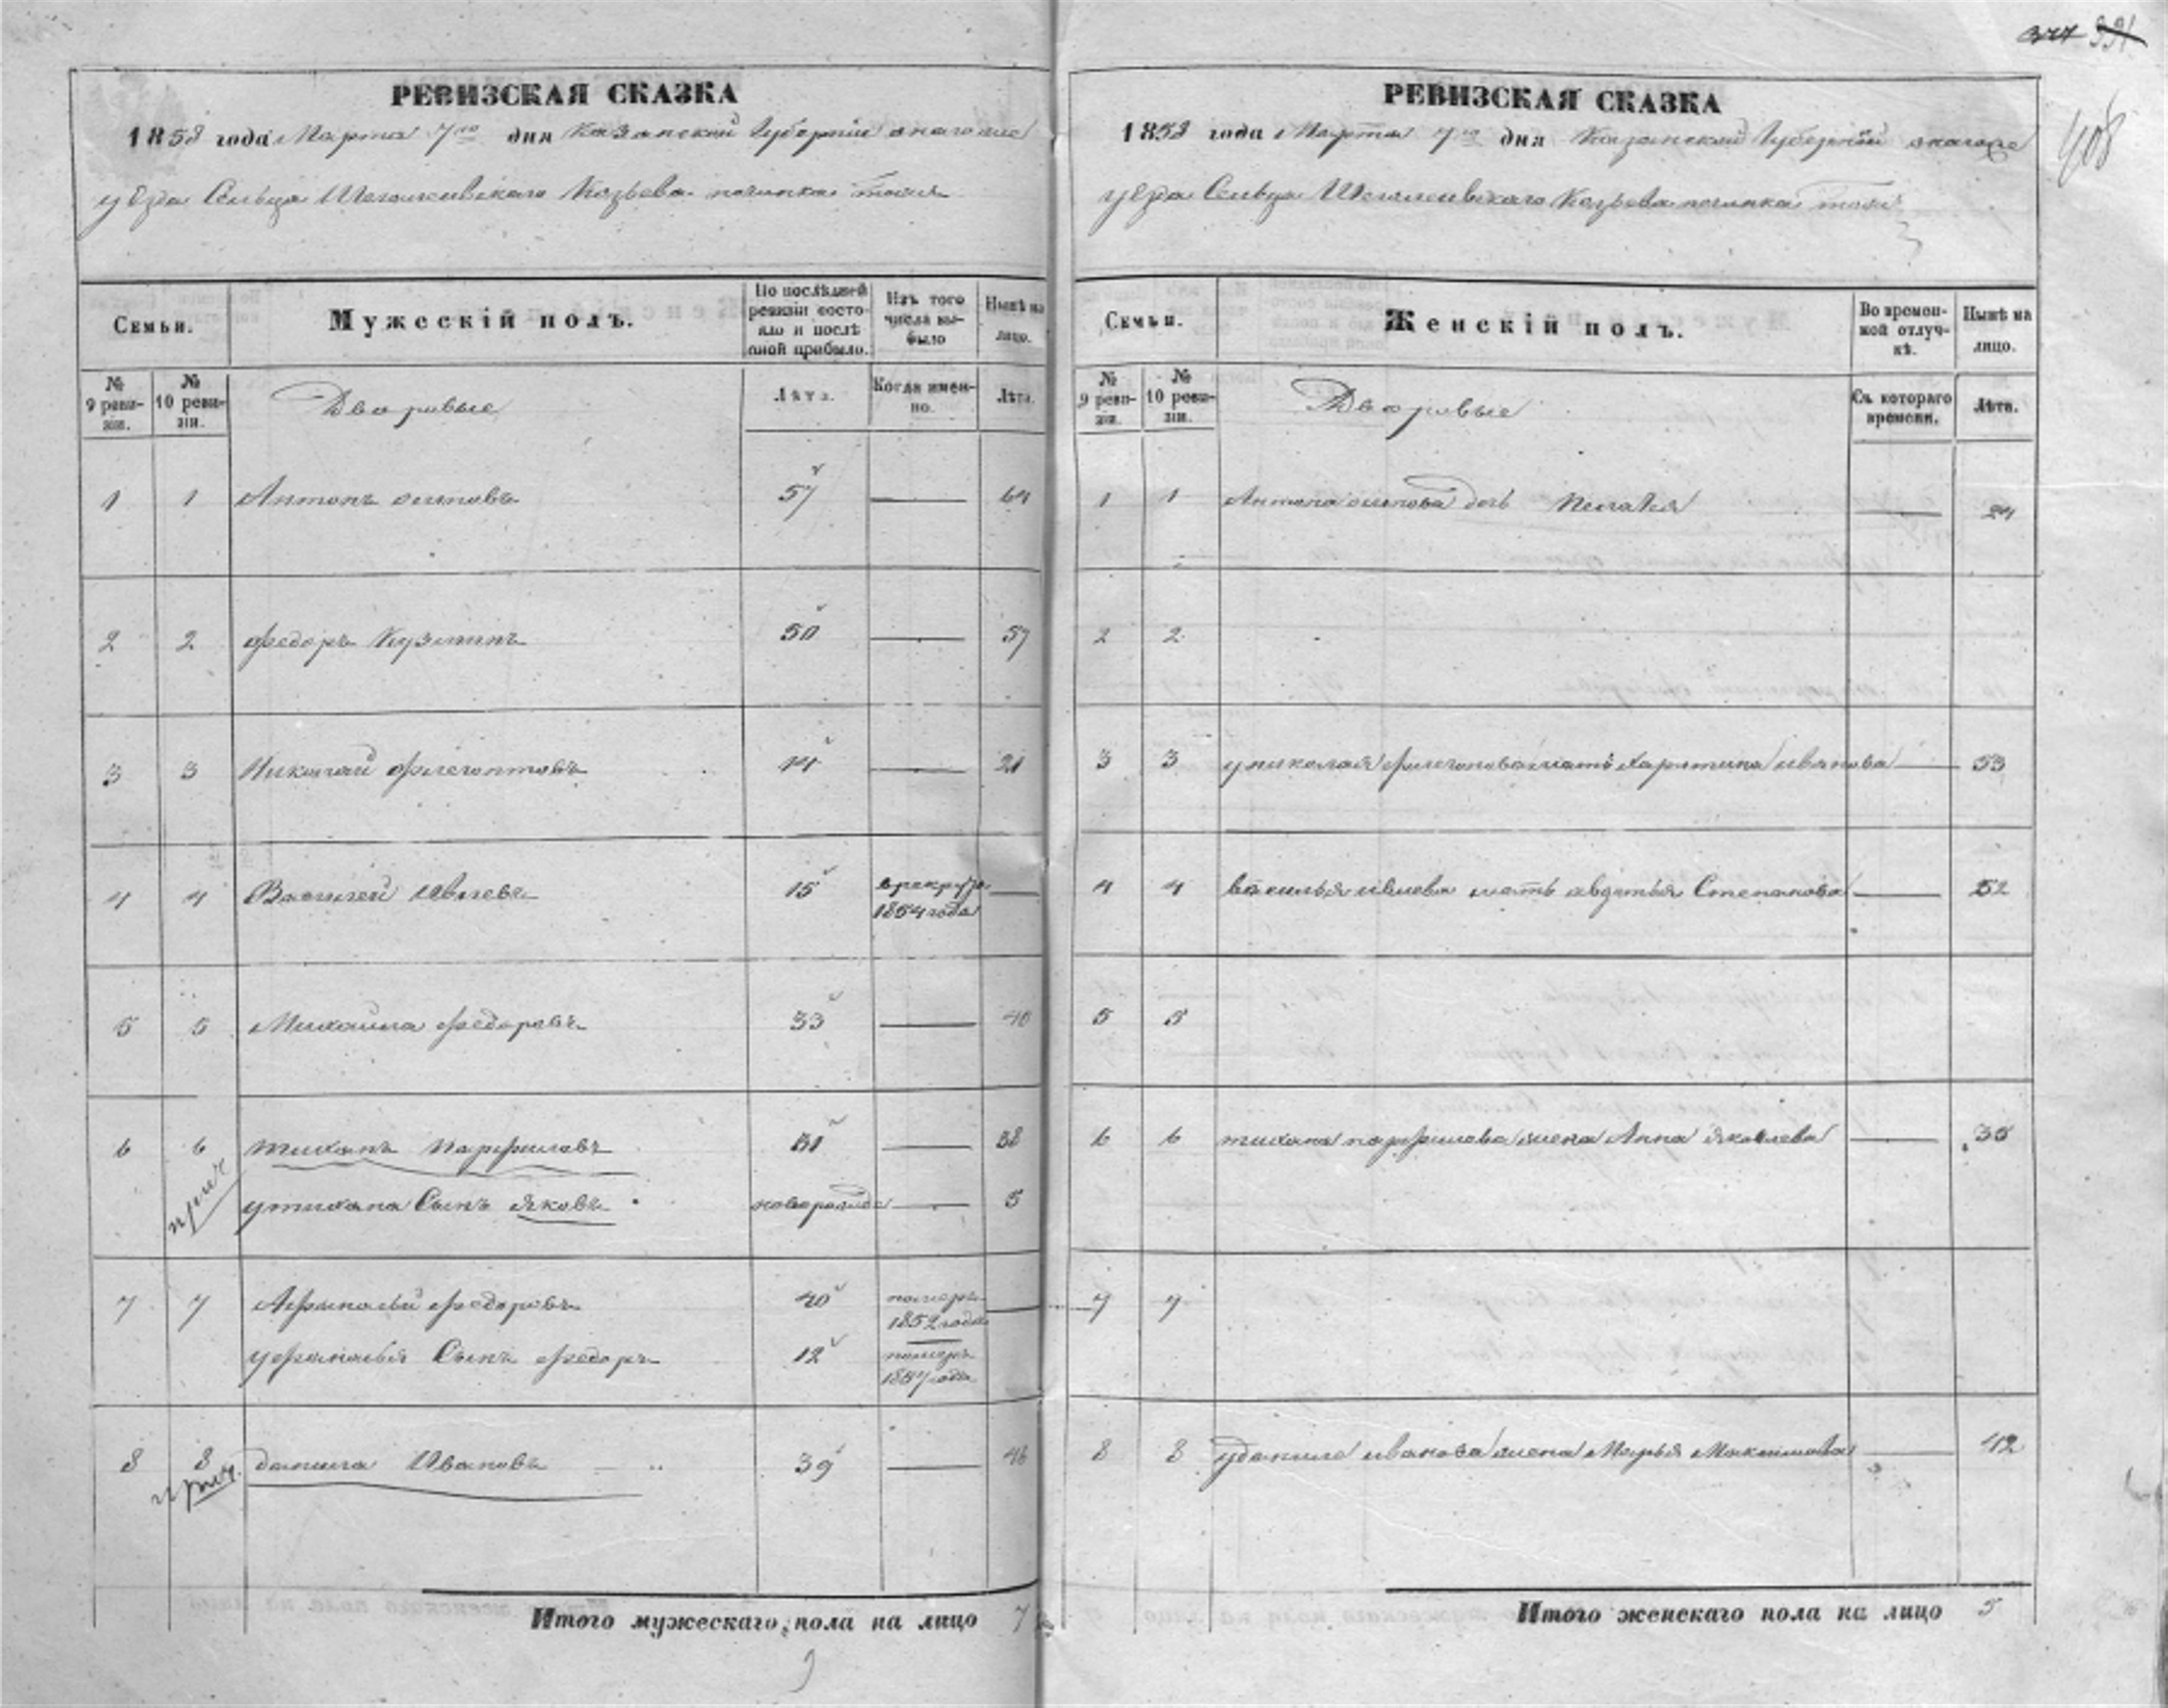 377 391
408
РЕВИЗСКАЯ СКАЗКА
1858 года Марта 7го дня Казанской Губернии
уезда Сельца Козьева починка тожъ
Семьи.
Мужескій полъ.
По послѣдней ревизіи состояло и послѣ оной прибыло.
Изъ того числа выбыло
Нынѣ на лицо.
№ 9 ревизіи.
№ 10 ревизіи.
Дворовые
Лѣта.
Когда именно.
Лѣта.
1 1 Антонъ осиповъ 57 — 64
2 2 федоръ Кузминъ 50 — 57
3 3 Николай флегонтовъ 14 — 21
4 4 Василей Ивлевъ 15 врекруты 1854 года —
5 5 Михайла федоровъ 33 — 40
6 6 тиханъ парфиловъ 31 — 38
прич
утихана Сынъ яковъ новорожде — 5
7 7 Афанасьй федоровъ 40 померъ 1852 года —
уафанасья Сынъ федоръ 12 померъ 1857 года
8 8 данила Ивановъ 39 — 46
прич.
Итого мужескаго пола на лицо 7
РЕВИЗСКАЯ СКАЗКА
1858 года Марта 7го дня Казанской Губерніи
уезда Сельца Козьева починка тожъ
Семьи.
Женскій полъ.
Во временной отлучкѣ.
Нынѣ на лицо.
№ 9 ревизіи.
№ 10 ревизіи.
Дворовые
Съ котораго времени.
Лѣта.
1 1 Антона осипова дочь Пелагея — 24
2 2
3 3 униколая флегонова мать Харитина иванова — 53
4 4 василья ивлева мать авдотья Степанова — 52
5 5
6 6 тихана парфилова жена Анна яковлева — 35
7 7
8 8 уданилы иванова жена Марья Максимова — 42
Итого женскаго пола на лицо 5